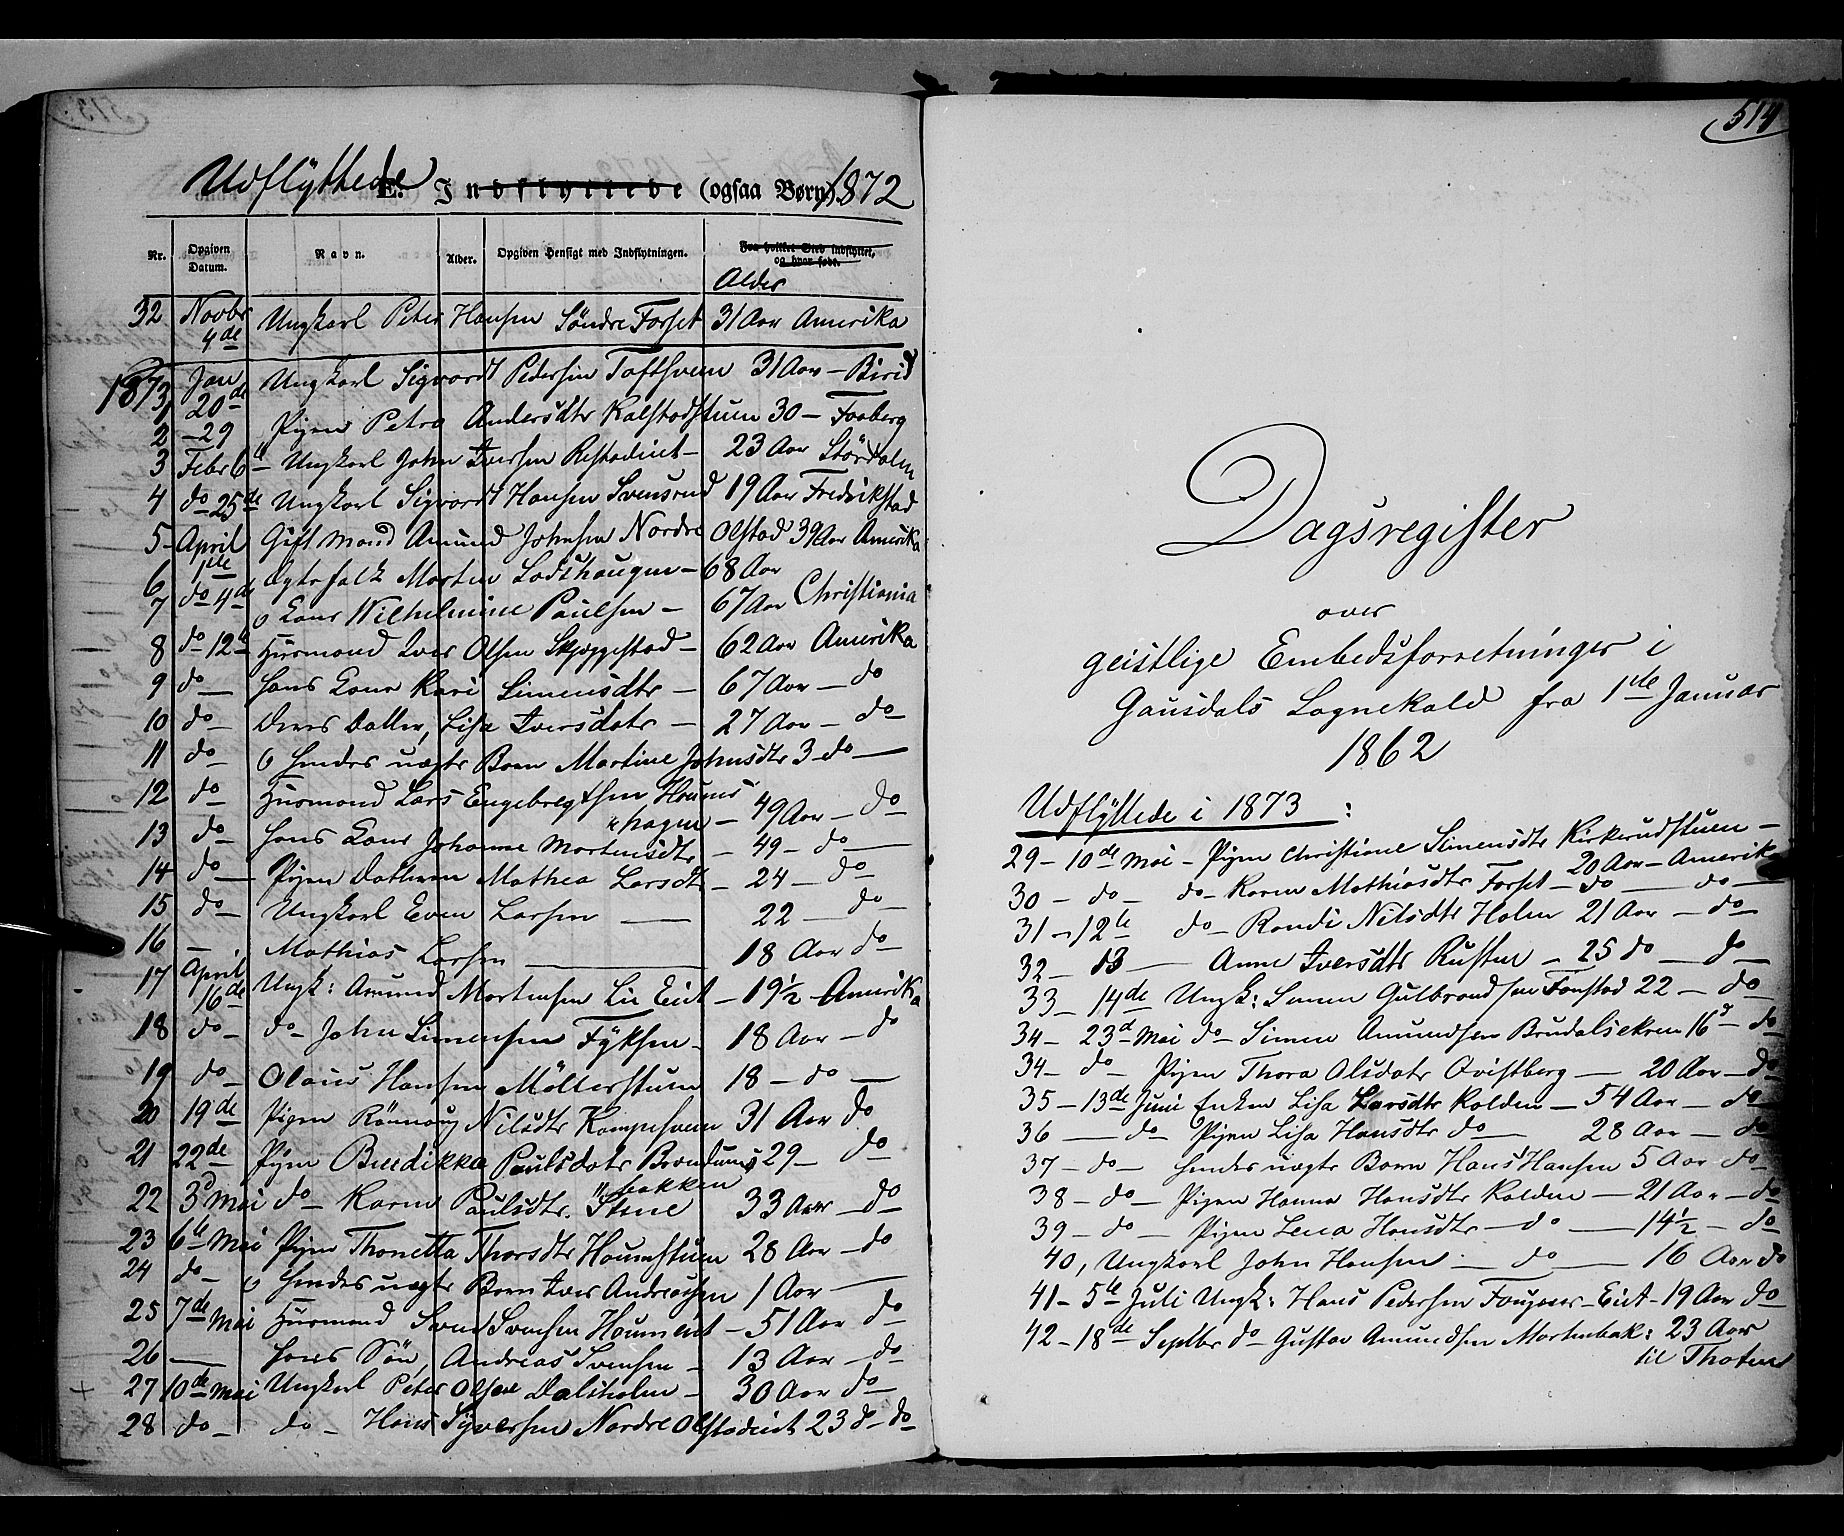 513.
Udflyttede E. Indflyttede (ogsaa Børn). 1872
Nr. Opgiven Datum. Navn. Alder. Opgiven Hensigt med Indflytningen. Fra hvilket Sted indflyttet, og hvor født.
Alder
32 Novbr 4de Ungkarl Peter Hansen Söndre Forset 31 Aar Amerika
1873
1 Jan 20de Ungkarl Sigvardt Pedersen Toftsveen 31 Aar — Birid
2 — 29 Pigen Petra Andersdtr Kalstadstuen 30 — Faaberg
3 Febr 6te — Ungkarl John Iversen — 23 Aar Stördalen
4 do 25de Ungkarl Sigvardt Hansen Svensrud 19 Aar Fredrikstad
5 — April 1ste Gift Mand Amund Johnsen Nordre Olstad 39 Aar Amerika
6 do 4de Ægtefolk Morten Lodshaugen — 68 Aar
7 o Kone Wilhelmine Paulsen — 67 Aar Christiania
8 do 12te Huusmand Iver Olsen Skjeggestad — 62 Aar Amerika
9 do — Hans Kone Kari Simensdtr — 67 Aar — do
10 do — Deres Datter, Lisa Iversdatr — 27 Aar — do
11 do o Hendes uægte Barn Martine Johnsdtr 3 do —
12 do Huusmand Lars Engebregtsen Houms
"hagen — 49 Aar — do
13 do — Hans Kone Johanne Mortensdtr — 49 — do
14 do — Pigen Datteren Mathea Larsdtr — 24 — do
15 do — Ungkarl Even Larsen — 22 — do
16 — Mathias Larsen — 18 Aar do
17 April 16de Ungk: Amund Mortensen Lie Eiet — 19½ — Amerika
18 do — do — John Simensen Fyksen — 18 Aar — do
19 do — Olaus Hansen Mölterstuen 18 — do —
20 19de Pigen Rönnoug Nilsdtr Kampesveen 31 Aar do
21 22de Pigen Buedikka Paulsdatr Brændums 29 — do
"bakken
22 3d Mai do — Karen Paulsdtr. Stene 33 Aar — do
23 6te Mai Pigen Thonetta Thorsdtr Houmstuen 28 Aar — do
24 do — o Hendes uægte Barn Iver Andreassen 1 Aar —
25 7de Mai Huusmand Svend Svensen Houmeiet — 51 Aar do
26 — Hans Sön, Andreas Svensen — 13 Aar — do
27 10de Mai Ungkarl Peter Olsen Dalsholen — 30 Aar do
28 do — do — Hans Syversen Nordre Olstadeiet 23 d — do
514
Dagsregister
over
geistlige Embedsforretninger i
Gausdals Sognekald fra 1ste Januar
1862
Udflyttede i 1873 :
29 — 10de Mai — Pigen Christiane Simensdtr Kirkerudstuen —
20 Aar — Amerika
30 — do — do — Karen Mathiasdtr Forset — do — do —
31 — 12te do — Randi Nilsdtr Holen 21 Aar — do
32 — 13 — Anne Iversdtr Rusten — 25 do — do —
33 — 14de Ungk: Simen Gulbrandsen Fonstad 22 — do
34 — 23d Mai do — Simen Amundsen Brudalsekren 16 — do
34 — do — Pigen Thora Olsdatr Qvistberg — 20 Aar — do
35 — 13de Juni Enken Lisa Larsdtr Kolden — 54 Aar — do
36 — do — Pigen Lisa Hansdtr do — 28 Aar — do
37 — do — Hendes uægte Barn Hans Hansen 5 Aar — do
38 — do — Pigen Hanna Hansdtr Kolden — 21 Aar — do
39 — do — Pigen Lena Hansdtr — do — 14½ — do
40, Ungkarl John Hansen — do — 16 Aar do
41 — 5te Juli Ungk: Hans Pedersen — Eiet — 19 Aar do
42 — 18de Septbr do — Gustav Amundsen Mortenbak: 23 Aar
til Thoten